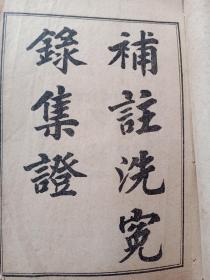 補註洗寃
錄集證